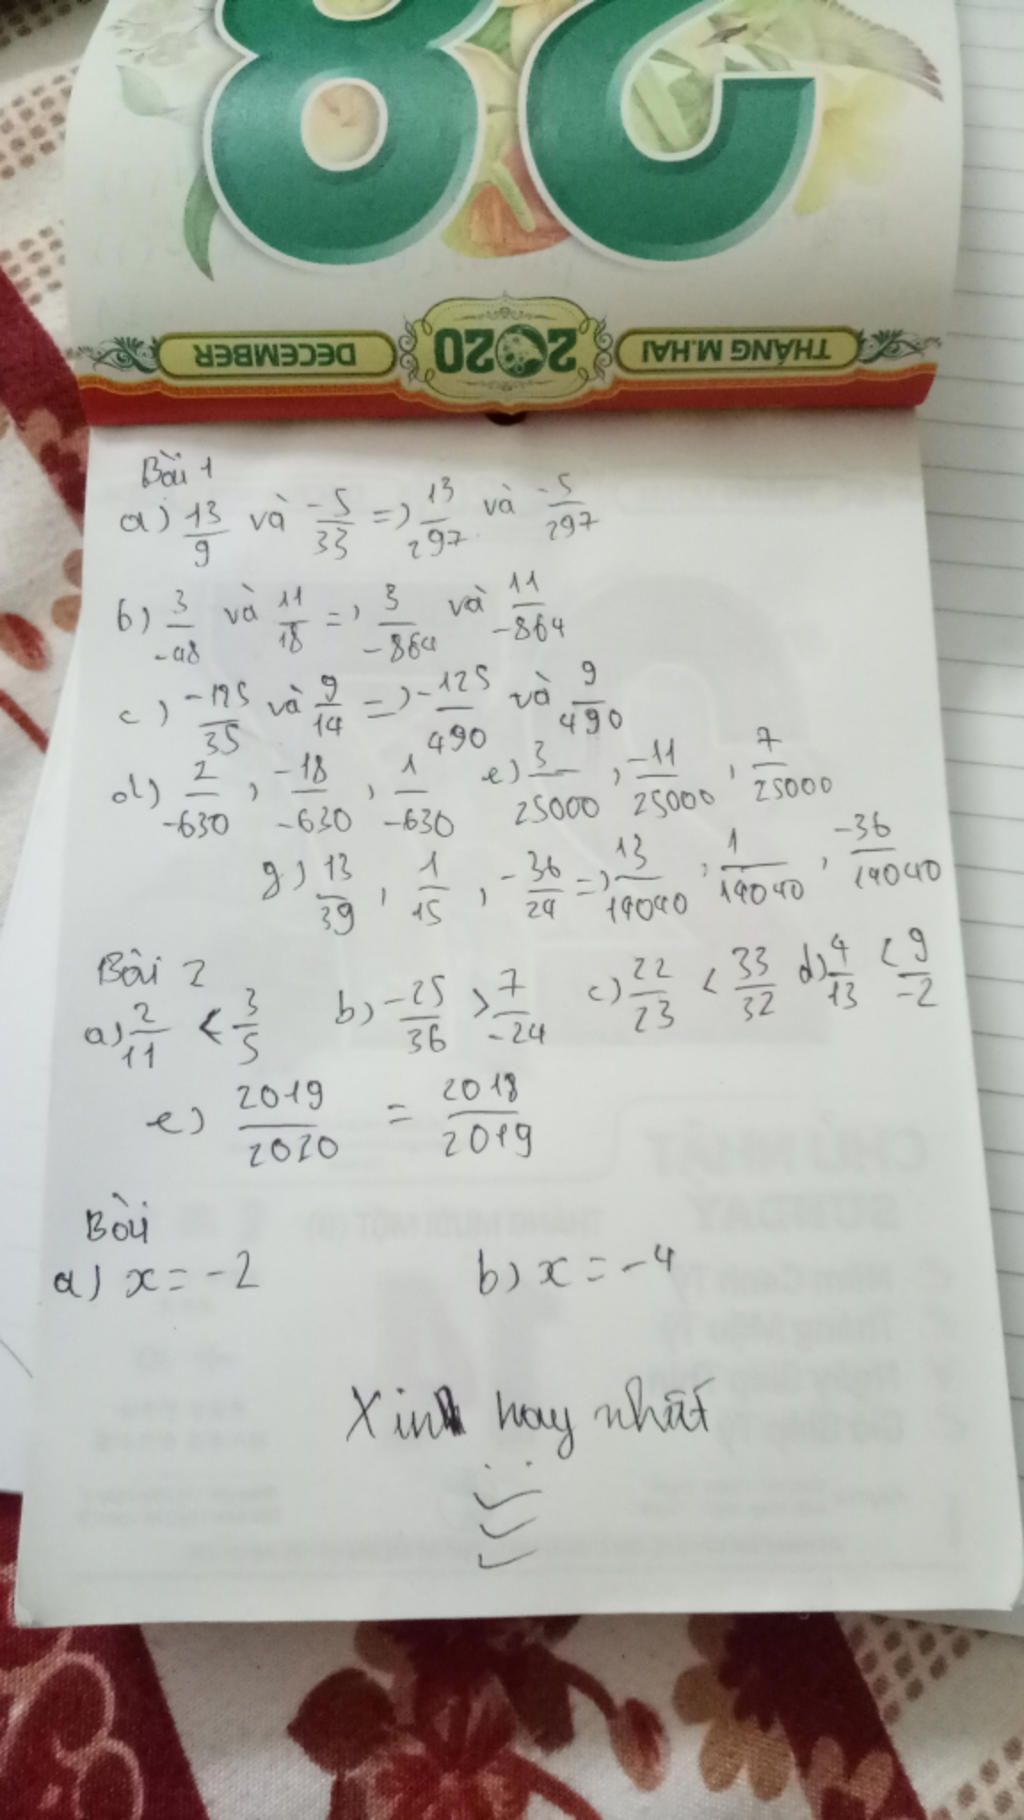 28
THÁNG M.HAI 2020 DECEMBER
Bài 1
a) 13/9 và -5/33 => 13/297 và -5/297
b) 3/-48 và 11/18 => 3/-864 và 11/-864
c) -125/35 và 9/14 => -125/490 và 9/490
d) 2/-630, -18/-630, 1/-630 e) 3/25000, -11/25000, 7/25000
g) 13/39, 1/15, -36/24 => 13/14040, 1/14040, -36/14040
Bài 2
a) 2/11 < 3/5 b) -25/36 > 7/-24 c) 22/23 < 33/32 d) 4/13 < 9/-2
e) 2019/2020 = 2018/2019
Bài
a) x = -2 b) x = -4
Xin hay nhất
CHỦ NHẬT
SUNDAY